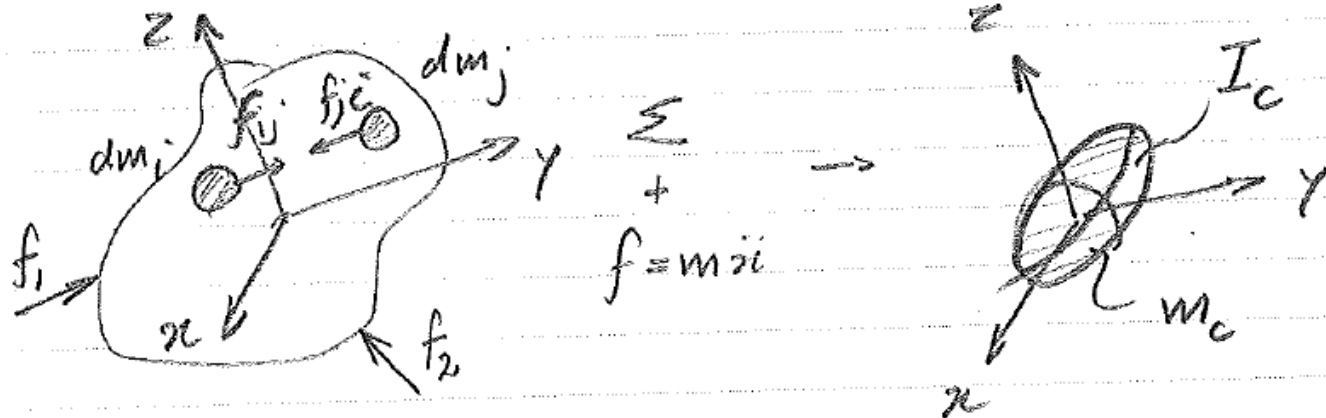 z
dm_j
f_ij
f_ji
dm_i
y
f_1
x
f_2
Σ
+
f = mẍ
→
z
I_c
y
m_c
x